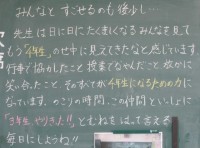 みんなと すごせるのも 後少し…
先生は日に日にたくましくなるみんなを見て
もう"4年生"のせ中に見えてきたなと感じています。
行事で協力したこと 授業でなやんだこと 放かに
笑い合ったこと そのすべてが 4年生になるための力に
なっています。のこりの時間、この仲間といっしょに
「3年生やりきった!!」とむねをはって言える
毎日にしようね!!